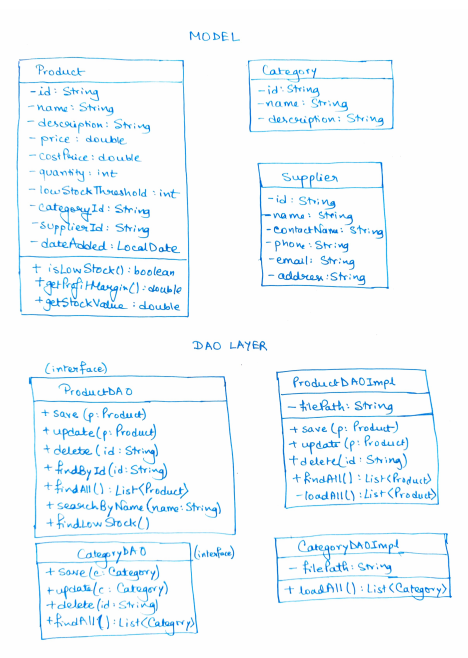 MODEL
Product
- id: String
- name: String
- description: String
- price: double
- costPrice: double
- quantity: int
- lowStockThreshold: int
- categoryId: String
- supplierId: String
- dateAdded: LocalDate
+ isLowStock(): boolean
+ getProfitMargin(): double
+ getStockValue: double
Category
- id: String
- name: String
- description: String
Supplier
- id: String
- name: String
- contactName: String
- phone: String
- email: String
- address: String
DAO LAYER
(interface)
ProductDAO
+ save (p: Product)
+ update(p: Product)
+ delete (id: String)
+ findById (id: String)
+ findAll(): List<Product>
+ searchByName (name: String)
+ findLowStock()
ProductDAOImpl
- filePath: String
+ save (p: Product)
+ update (p: Product)
+ delete(id: String)
+ findAll(): List<Product>
- loadAll(): List<Product>
CategoryDAO (interface)
+ save (c: Category)
+ update(c: Category)
+ delete (id: String)
+ findAll(): List<Category>
CategoryDAOImpl
- filePath: String
+ loadAll(): List<Category>